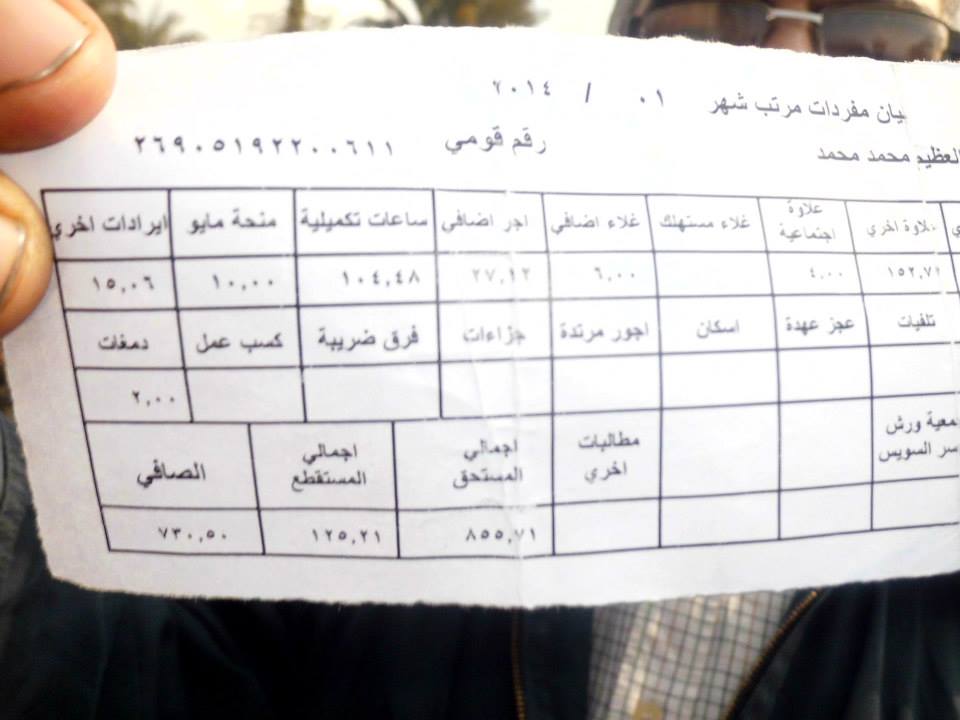 بيان مفردات مرتب شهر ٠١ / ٢٠١٤
العظيم محمد محمد رقم قومي ٢٦٩٠٥١٩٢٢٠٠٦١١
علاوة اخري علاوة اجتماعية غلاء مستهلك غلاء اضافي اجر اضافي ساعات تكميلية منحة مايو ايرادات اخري
١٥٢,٧١ ٤,٠٠ ٦,٠٠ ٢٧,١٢ ١٠٤,٤٨ ١٠,٠٠ ١٥,٠٦
تلفيات عجز عهدة اسكان اجور مرتدة جزاءات فرق ضريبة كسب عمل دمغات
٢,٠٠
ورش السويس مطالبات اخري اجمالي المستحق اجمالي المستقطع الصافي
٨٥٥,٧١ ١٢٥,٢١ ٧٣٠,٥٠